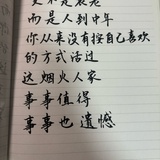 更不是衰老
而是人到中年
你从来没有按自己喜欢
的方式活过
这烟火人家
事事值得
事事也遗憾